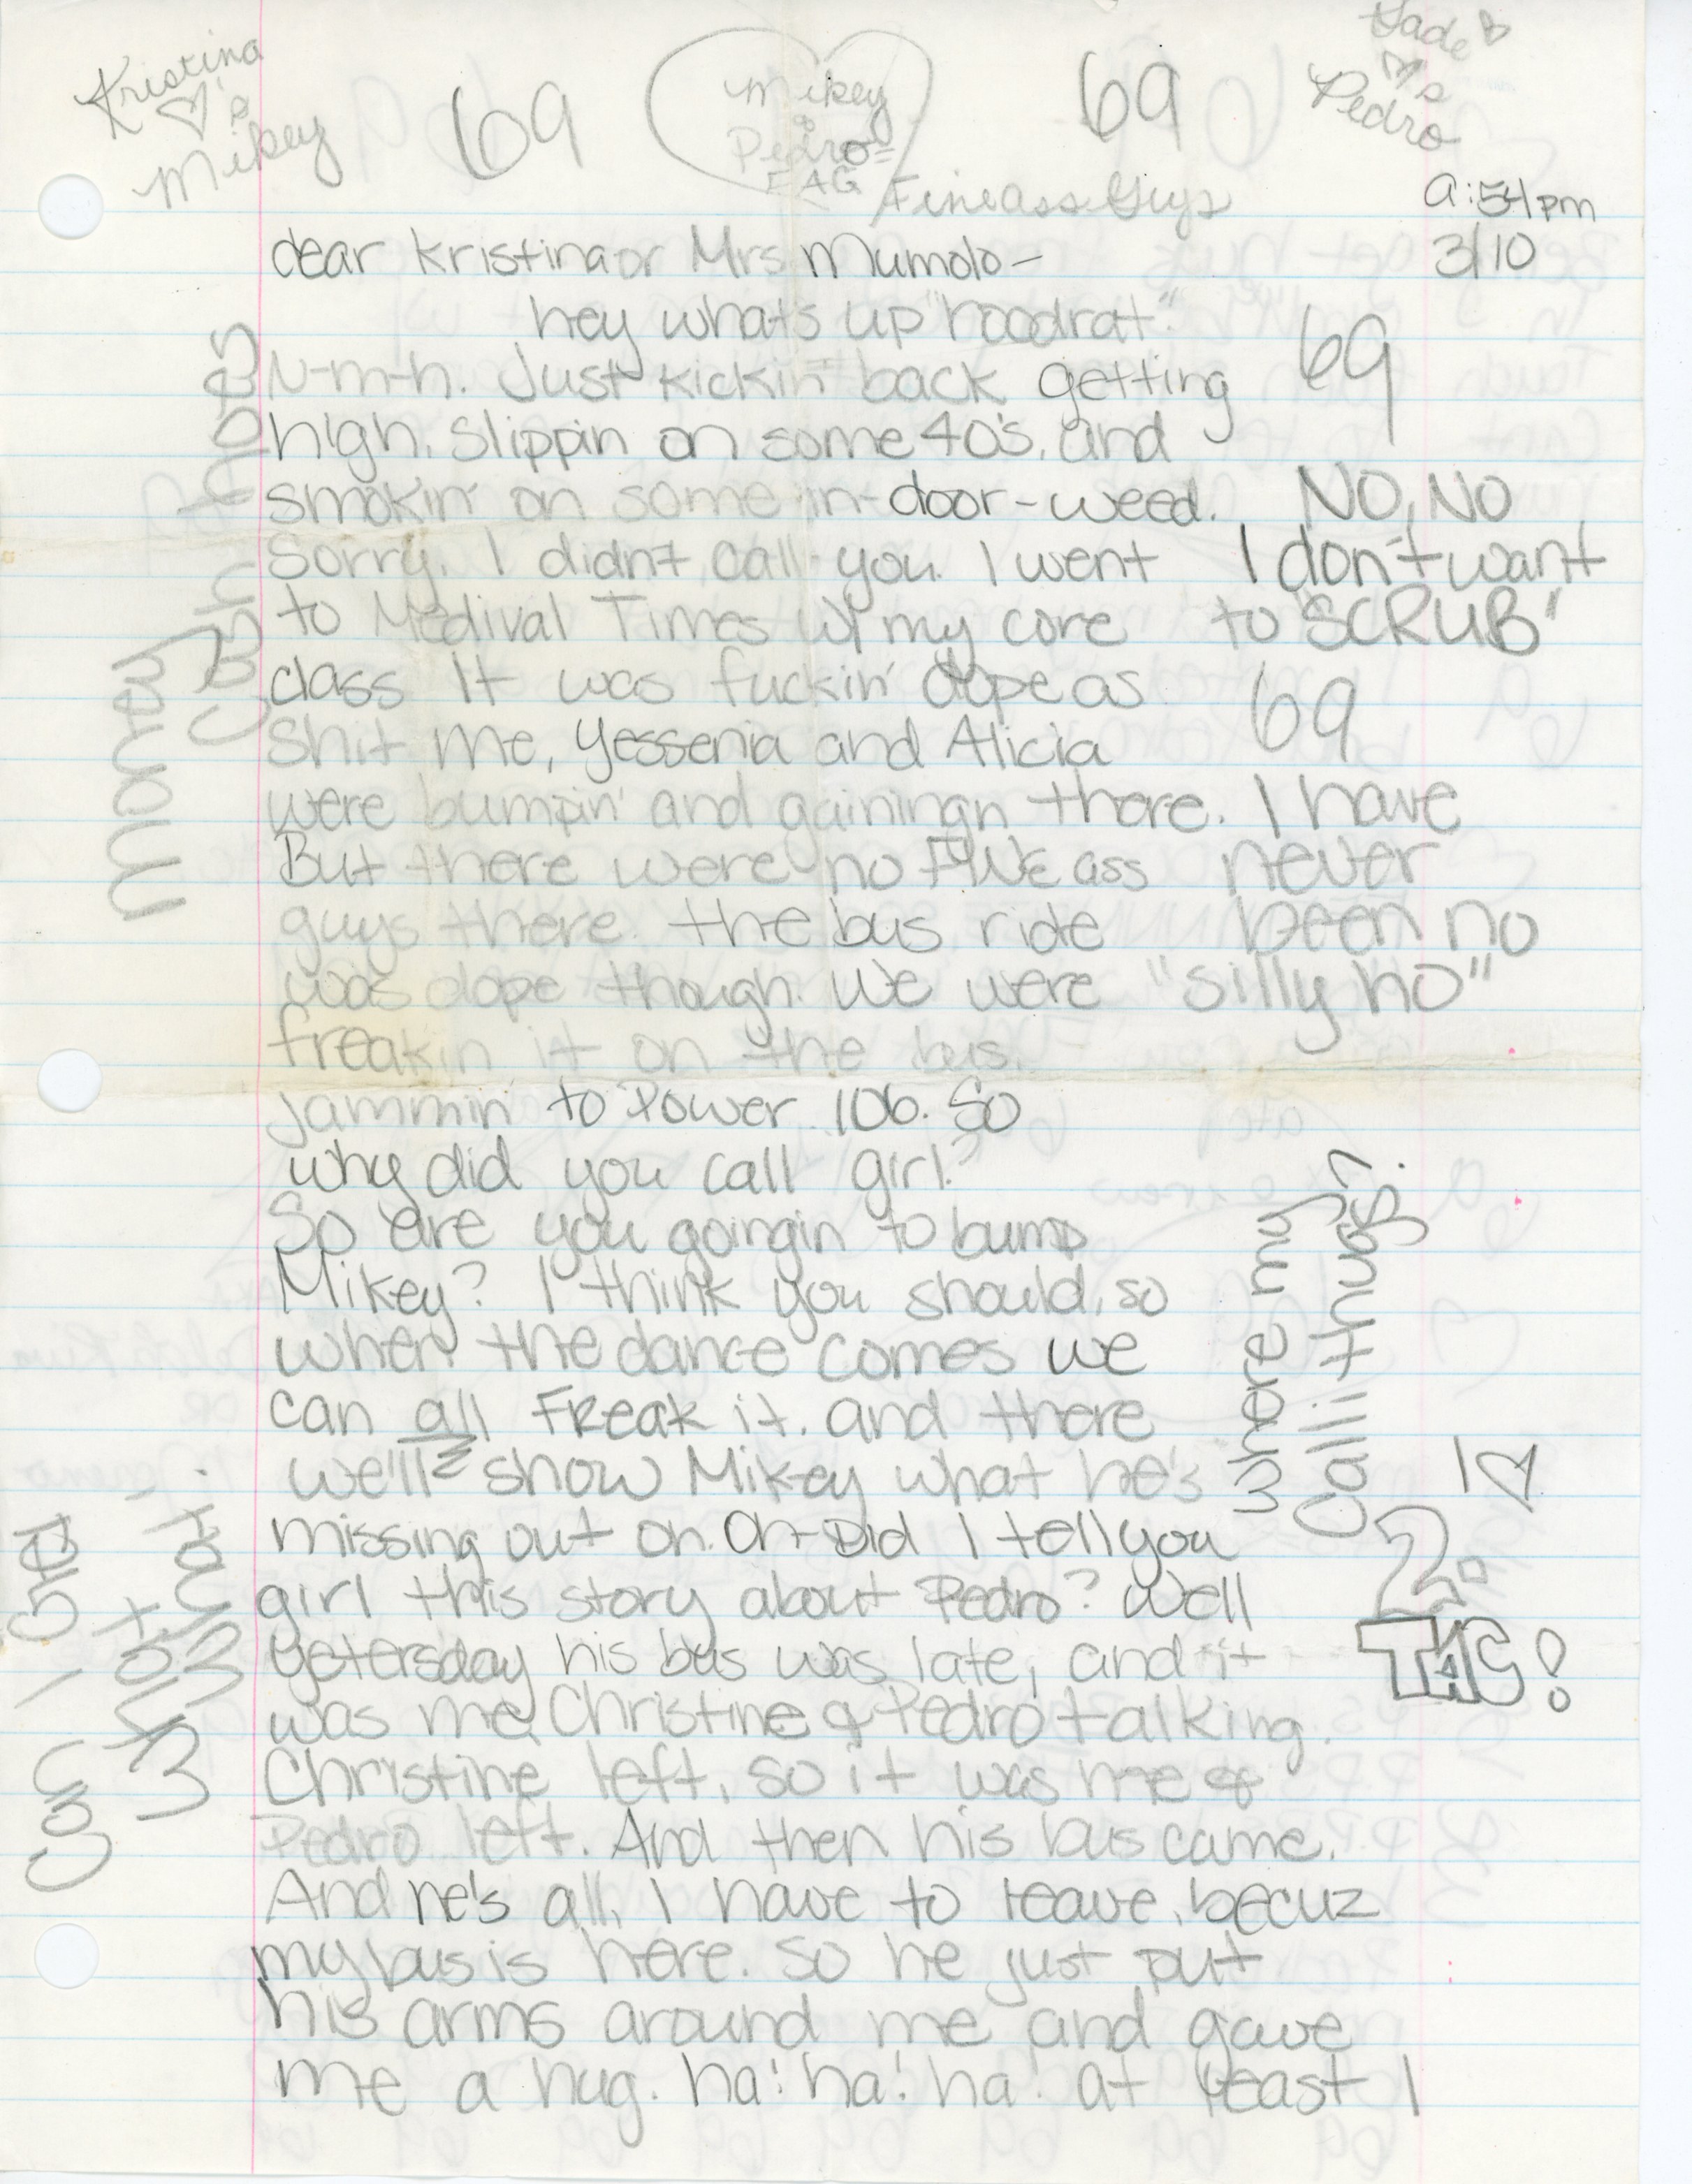 Kristina
♡'s
Mikey
69
Mikey
&
Pedro=
FAG
Fine ass Guys
69
Jade
♡'s
Pedro
9:54pm
3/10
dear Kristina or Mrs Mumolo-
hey whats up "hoodrat".
N-m-h. Just kickin' back getting
high, slippin on some 40's, and
smokin' on some in-door-weed.
Sorry, I didn't call you. I went
to Medival Times w/ my core
class It was fuckin' dope as
shit me, Yessenia and Alicia
were bumpin' and gainingn there.
But there were no FINE ass
guys there. the bus ride
was dope though. We were
freakin it on the bus.
Jammin' to Power 106. So
why did you call girl?
So are you goingin to bump
Mikey? I think you should, so
when the dance comes we
can all Freak it. and there
we'll show Mikey what he's
missing out on. Oh-Did I tell you
girl this story about Pedro? Well
yetersday his bus was late, and it
was me, Christine & Pedro talking.
Christine left, so it was me &
Pedro left. And then his bus came.
And he's all, I have to leave, becuz
my bus is here. So he just put
his arms around me and gave
me a hug. ha! ha! ha! at least I
69
NO, NO
I don't want
to "SCRUB"
69
I have
never
been no
"silly ho"
where my
Calli thugs?
I ♡
2.
TAG!
Cash hoes
money
Can I Get
What.